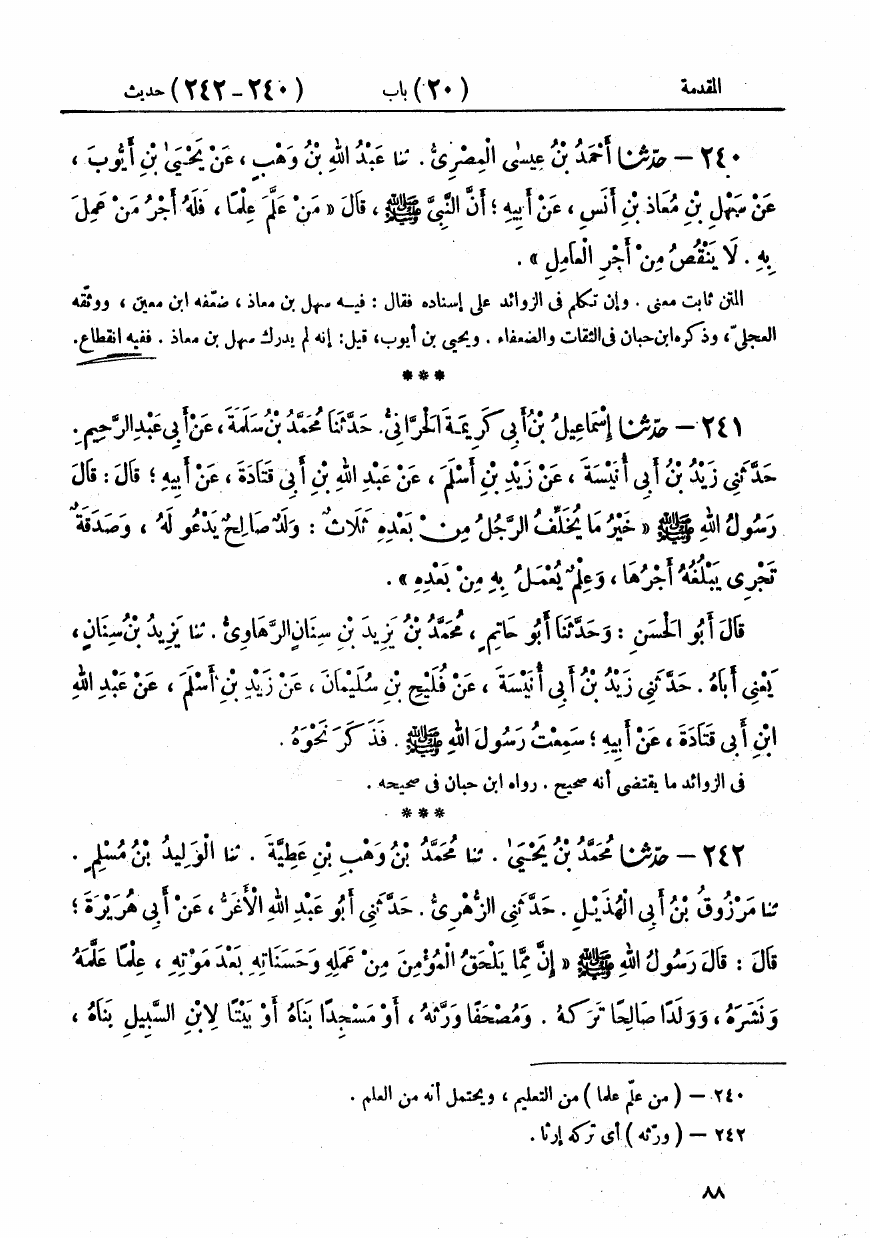 المقدمة (٢٠) باب (٢٤٠-٢٤٢) حديث
٢٤٠ — حدّثنا أَحْمَدُ بْنُ عِيسَى الْمِصْرِىُّ. ثنا عَبْدُ اللهِ بْنُ وَهْبٍ، عَنْ يَحْيَىٰ بْنِ أَيُّوبَ،
عَنْ سَهْلِ بْنِ مُعَاذِ بْنِ أَنَسٍ، عَنْ أَبِيهِ؛ أَنَّ النَّبِيَّ ﷺ، قَالَ «مَنْ عَلَّمَ عِلْمًا، فَلَهُ أَجْرُ مَنْ عَمِلَ
بِهِ. لَا يَنْقُصُ مِنْ أَجْرِ الْعَامِلِ».
المتن ثابت معنى. وإن تكلم فى الزوائد على إسناده فقال: فيه سهل بن معاذ، ضعّفه ابن معين، ووثّقه
العجلىّ، وذكره ابن حبان فى الثقات والضعفاء. ويحيى بن أيوب، قيل: إنه لم يدرك سهل بن معاذ. ففيه انقطاع.
***
٢٤١ — حدّثنا إِسْمَاعِيلُ بْنُ أَبِى كَرِيمَةَ الْحَرَّانِىُّ. حَدَّثَنَا مُحَمَّدُ بْنُ سَلَمَةَ، عَنْ أَبِى عَبْدِ الرَّحِيمِ.
حَدَّثَنِى زَيْدُ بْنُ أَبِى أُنَيْسَةَ، عَنْ زَيْدِ بْنِ أَسْلَمَ، عَنْ عَبْدِ اللهِ بْنِ أَبِى قَتَادَةَ، عَنْ أَبِيهِ؛ قَالَ: قَالَ
رَسُولُ اللهِ ﷺ «خَيْرُ مَا يُخَلِّفُ الرَّجُلُ مِنْ بَعْدِهِ ثَلَاثٌ: وَلَدٌ صَالِحٌ يَدْعُو لَهُ، وَصَدَقَةٌ
تَجْرِى يَبْلُغُهُ أَجْرُهَا، وَعِلْمٌ يُعْمَلُ بِهِ مِنْ بَعْدِهِ».
قَالَ أَبُو الْحَسَنِ: وَحَدَّثَنَا أَبُو حَاتِمٍ، مُحَمَّدُ بْنُ يَزِيدَ بْنِ سِنَانٍ الرَّهَاوِىُّ. ثنا يَزِيدُ بْنُ سِنَانٍ،
يَعْنِى أَبَاهُ. حَدَّثَنِى زَيْدُ بْنُ أَبِى أُنَيْسَةَ، عَنْ فُلَيْحِ بْنِ سُلَيْمَانَ، عَنْ زَيْدِ بْنِ أَسْلَمَ، عَنْ عَبْدِ اللهِ
ابْنِ أَبِى قَتَادَةَ، عَنْ أَبِيهِ؛ سَمِعْتُ رَسُولَ اللهِ ﷺ. فَذَكَرَ نَحْوَهُ.
فى الزوائد ما يقتضى أنه صحيح. رواه ابن حبان فى صحيحه.
***
٢٤٢ — حدّثنا مُحَمَّدُ بْنُ يَحْيَىٰ. ثنا مُحَمَّدُ بْنُ وَهْبِ بْنِ عَطِيَّةَ. ثنا الْوَلِيدُ بْنُ مُسْلِمٍ.
ثنا مَرْزُوقُ بْنُ أَبِى الْهُذَيْلِ. حَدَّثَنِى الزُّهْرِىُّ. حَدَّثَنِى أَبُو عَبْدِ اللهِ الْأَغَرُّ، عَنْ أَبِى هُرَيْرَةَ؛
قَالَ: قَالَ رَسُولُ اللهِ ﷺ «إِنَّ مِمَّا يَلْحَقُ الْمُؤْمِنَ مِنْ عَمَلِهِ وَحَسَنَاتِهِ بَعْدَ مَوْتِهِ، عِلْمًا عَلَّمَهُ
وَنَشَرَهُ، وَوَلَدًا صَالِحًا تَرَكَهُ. وَمُصْحَفًا وَرَّثَهُ، أَوْ مَسْجِدًا بَنَاهُ أَوْ بَيْتًا لِابْنِ السَّبِيلِ بَنَاهُ،
٢٤٠ — (من علّم علما) من التعليم، ويحتمل أنه من العلم.
٢٤٢ — (ورّثه) أى تركه إرثا.
٨٨